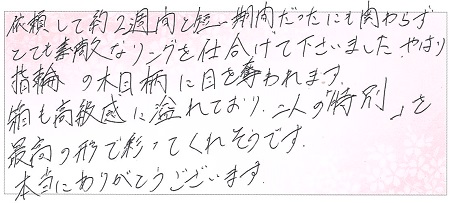 依頼して約2週間と短い期間だったにも関わらず
とても素敵なリングを仕合げて下さいました。やはり
指輪の木目柄に目を奪われます。
箱も高級感に溢れており、二人の「特別」を
最高の形で彩ってくれそうです。
本当にありがとうございます。